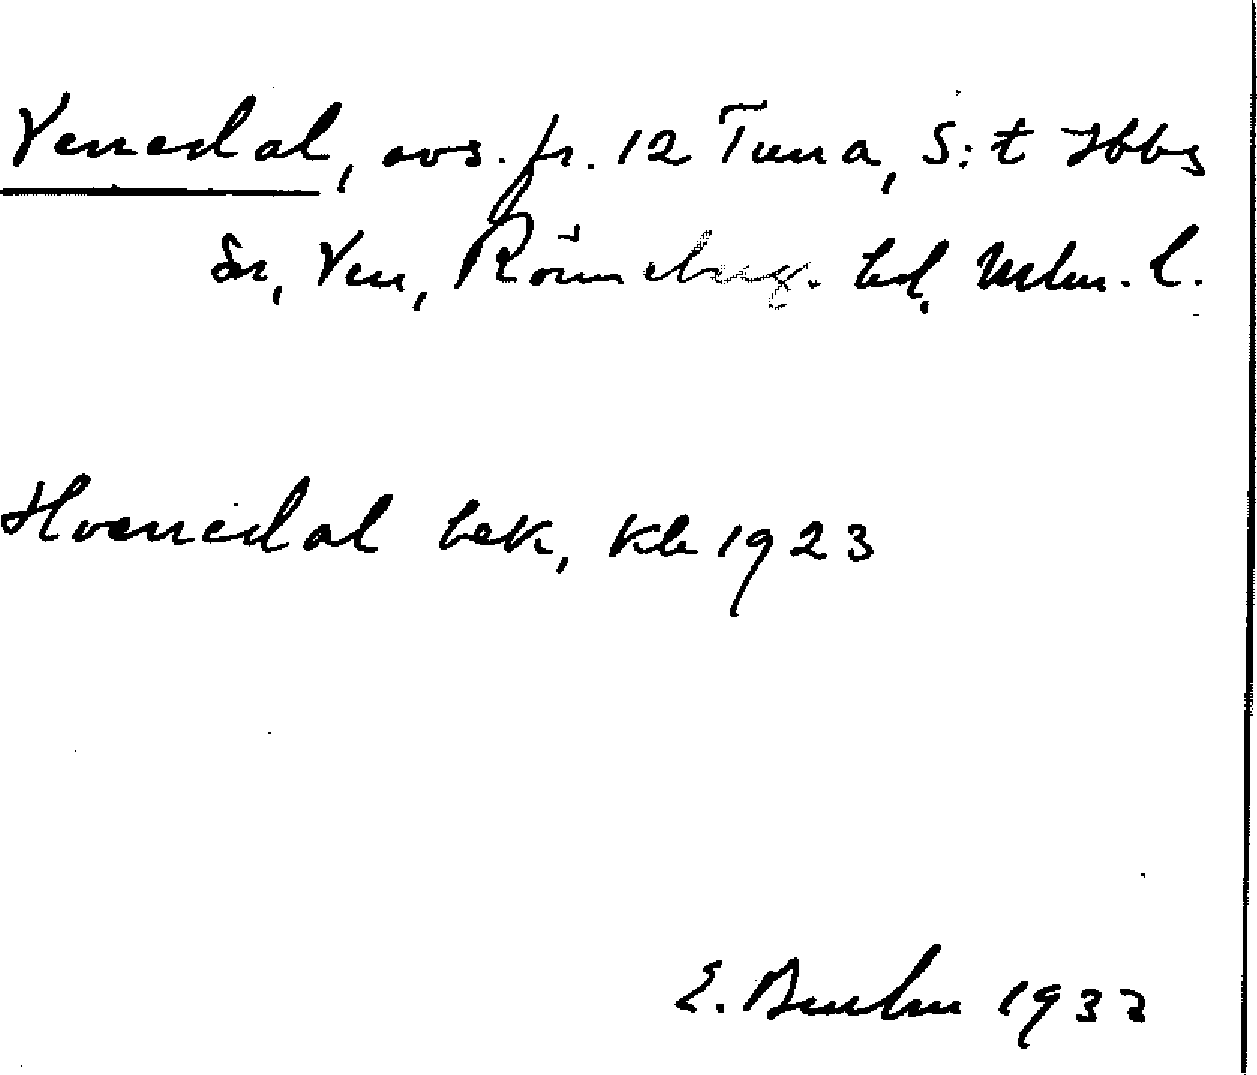 Venedal, avs. fr. 12 Tuna, S:t Ibbs
sn, Ven, Rönneberg. hd, Mlm. l.
Hvenedal bek, Kb 1923
E. 1932